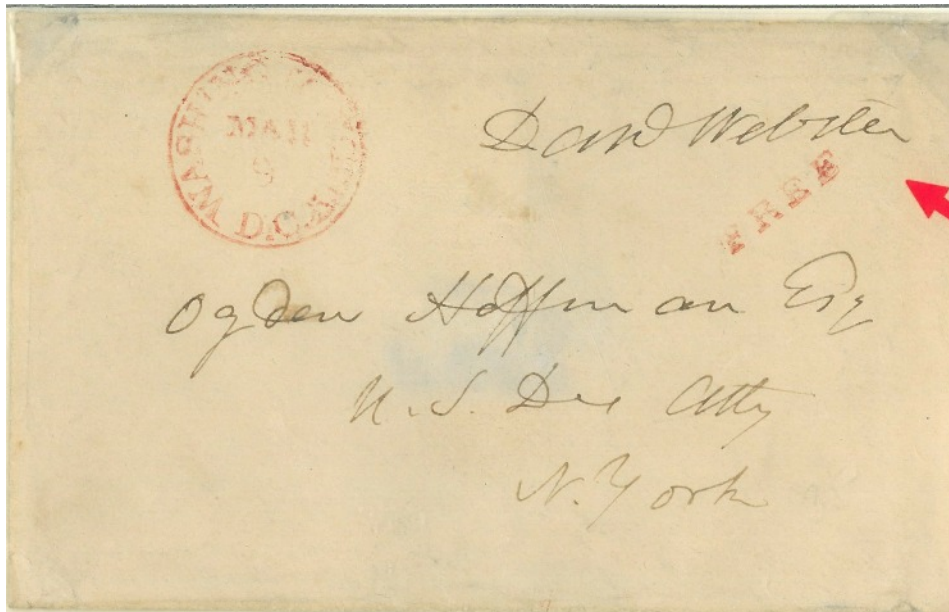 WASHINGTON CITY
MAR
9
D.C.
Danl Webster
FREE
Ogden Hoffman Esq
U.S. Dis Atty
N. York